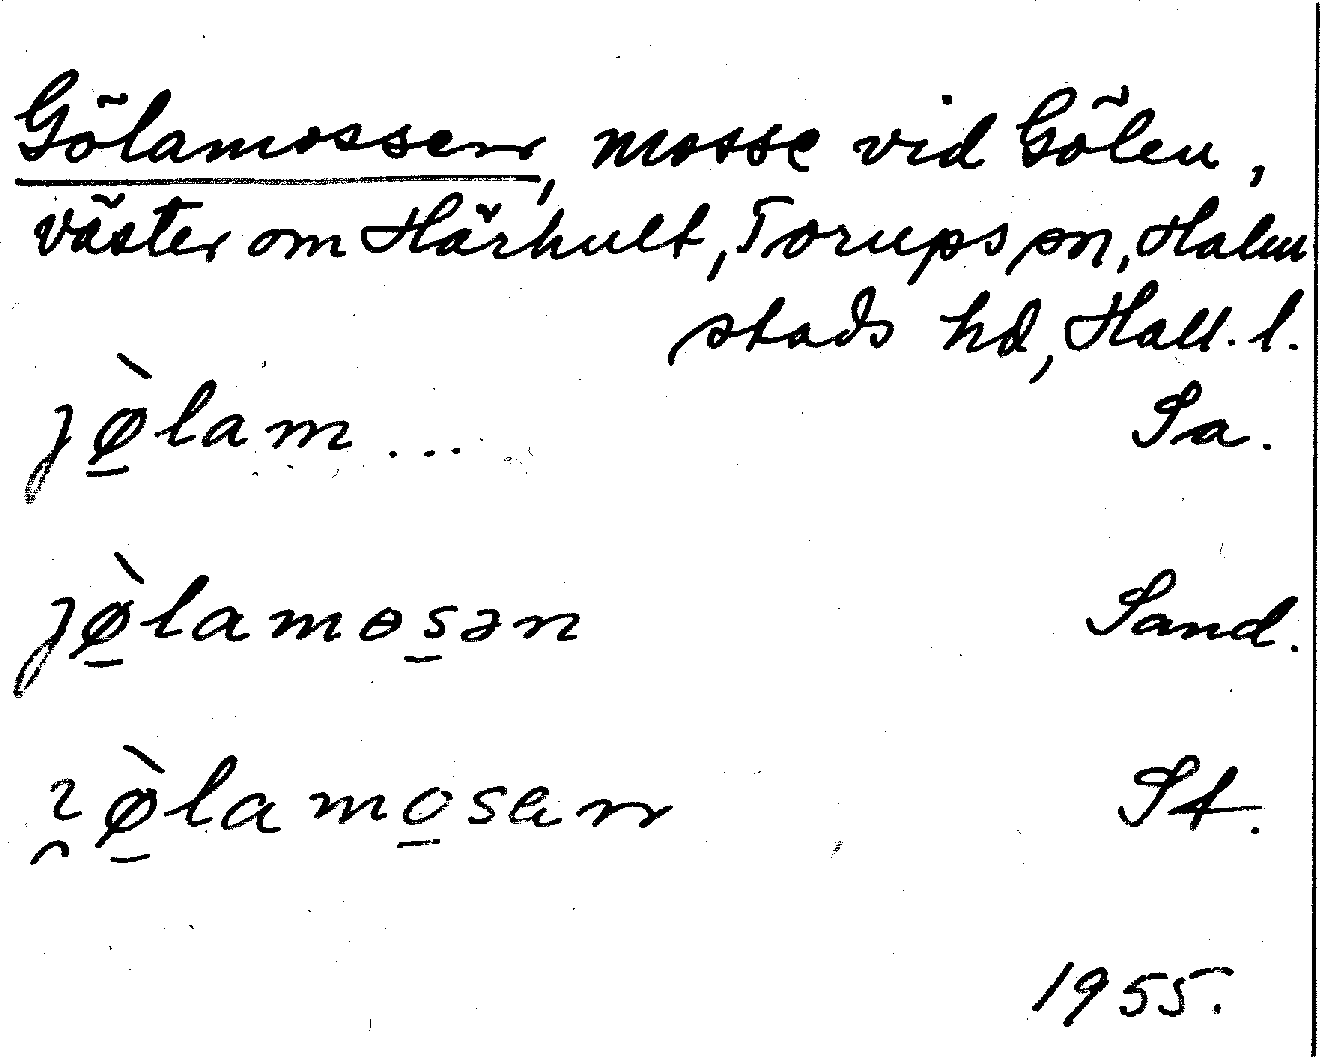 Gölamossen, mosse vid Gölen,
väster om Härhult, Torups sn, Halm
stads hd, Hall. l.
jø̱̀lam ... Sa.
jø̱̀lamɵs̱ən Sand.
ɀ̯ø̱̀lamo̱sen St.
1955.